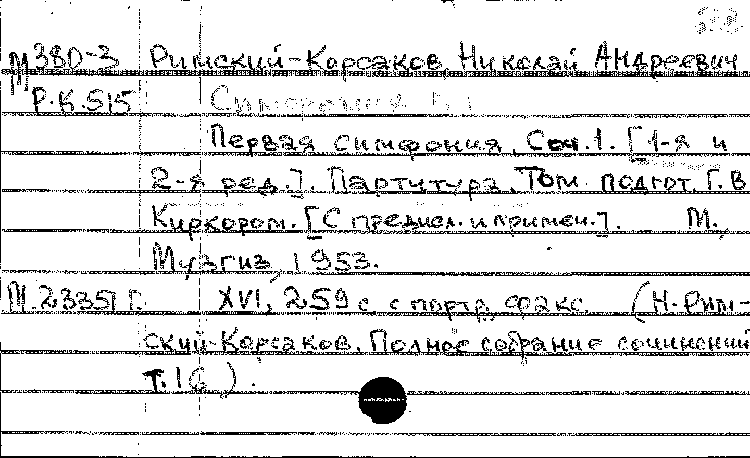 М380-3 Римский-Корсаков, Николай Андреевич
Р.К.515 Симфония
Первая симфония, Соч.1. [1-я и
2-я ред.]. Партитура. Том подгот. Г.В
Киркором. [С предисл. и примеч.]. М.,
Музгиз, 1953.
М.23357 Г. XVI, 259 с. с портр., факс. (Н. Рим-
ский-Корсаков. Полное собрание сочинений
т. 16).